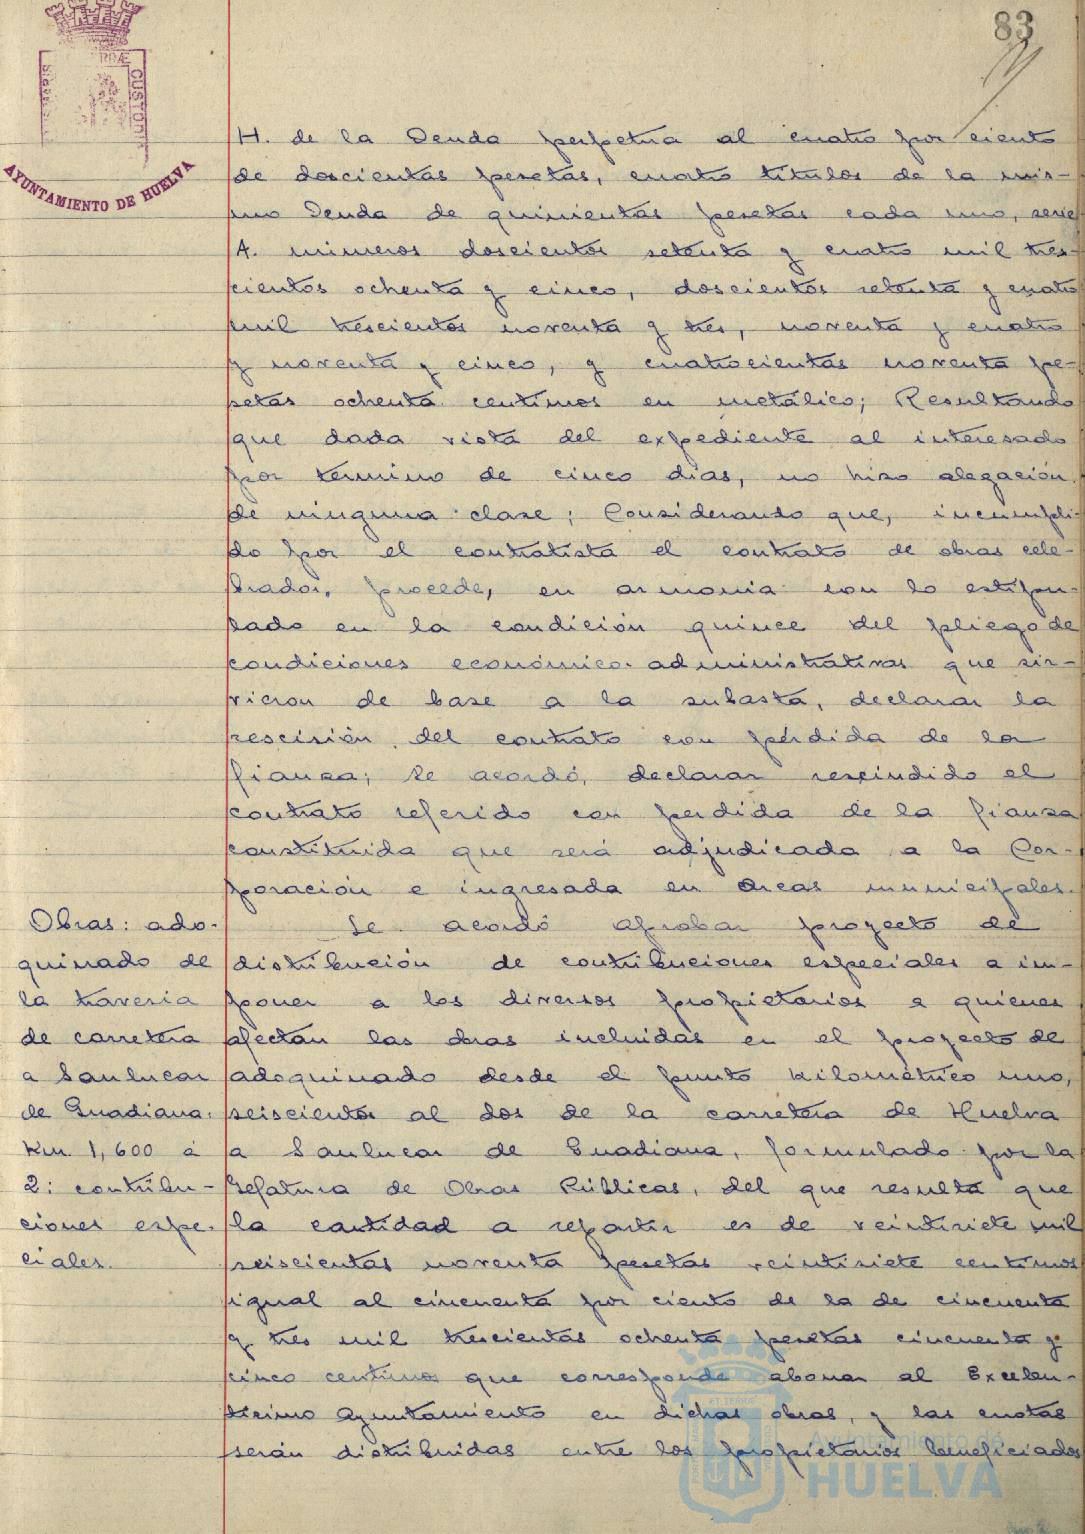 83
CUSTODIT
AYUNTAMIENTO DE HUELVA
H. de la Deuda perpetua al cuatro por ciento
de doscientas pesetas, cuatro titulos de la mis-
ma Deuda de quinientas pesetas cada uno, serie
A. numeros doscientos setenta y cuatro mil tres-
cientos ochenta y cinco, doscientos setenta y cuatro
mil trescientos noventa y tres, noventa y cuatro
y noventa y cinco, y cuatrocientas noventa pe-
setas ochenta centimos en metálico; Resultando
que dada vista del expediente al interesado
por termino de cinco dias, no hizo alegación
de ninguna clase; Considerando que, incumpli-
do por el contratista el contrato de obras cele-
brador, procede, en armonia con lo estipu-
lado en la condición quince del pliego de
condiciones económico-administrativas que sir-
vieron de base a la subasta, declarar la
rescisión del contrato con pérdida de la
fianza; Se acordó, declarar rescindido el
contrato referido con perdida de la fianza
constituida que será adjudicada a la Cor-
poración e ingresada en arcas municipales.
Obras: ado-
quinado de
la travesia
de carretera
a Sanlucar
de Guadiana.
Km. 1,600 á
2: contribu-
ciones espe-
ciales.
Se acordó aprobar proyecto de
distribución de contribuciones especiales a im-
poner a los diversos propietarios a quienes
afectan las obras incluidas en el proyecto de
adoquinado desde el punto kilométrico uno,
seiscientos al dos de la carretera de Huelva
a Sanlucar de Guadiana, formulado por la
Jefatura de Obras Públicas, del que resulta que
la cantidad a repartir es de veintisiete mil
seiscientas noventa pesetas veintisiete centimos
igual al cincuenta por ciento de la de cincuenta
y tres mil trescientas ochenta pesetas cincuenta y
cinco centimos que corresponde abonar al Excelen-
tisimo Ayuntamiento en dichas obras, y las cuotas
serán distribuidas entre los propietarios beneficiados
Ayuntamiento de
HUELVA